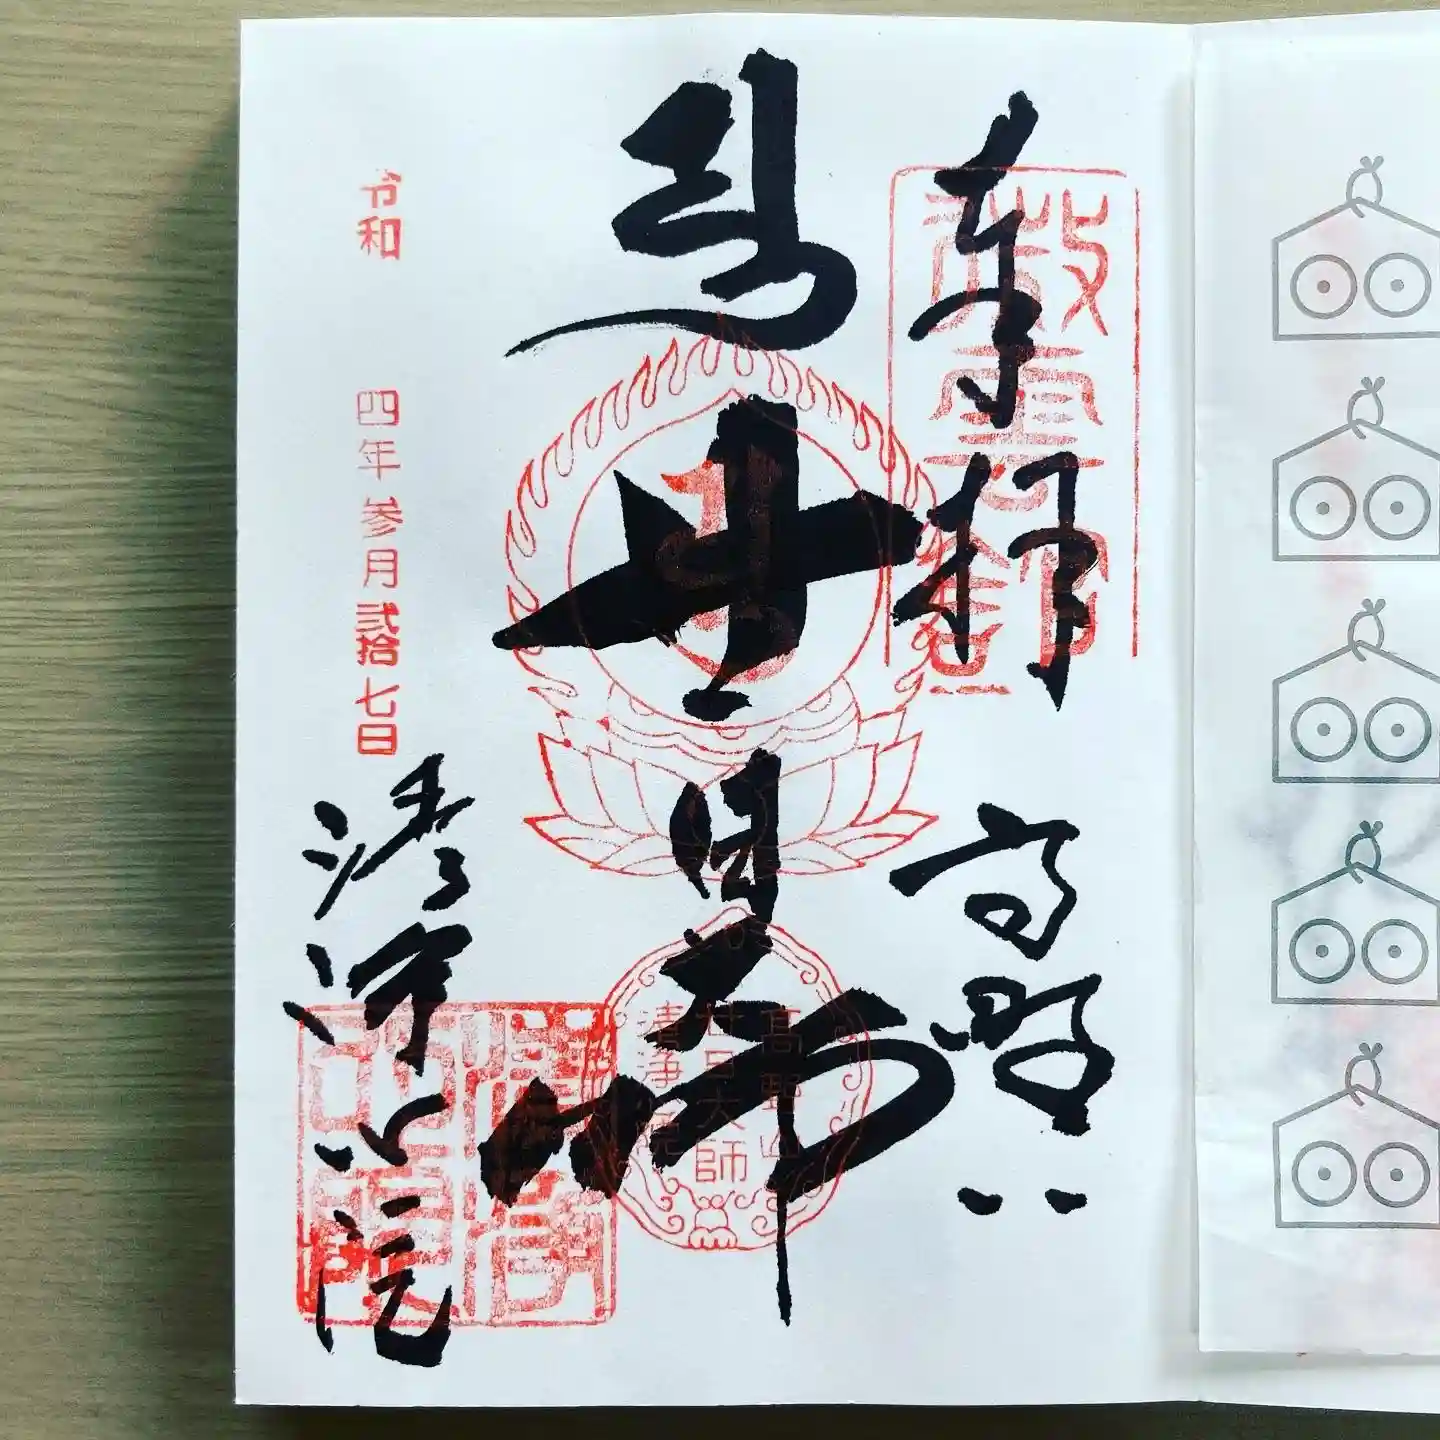 奉拝
高野山
廿日大師
令和 四年参月弐拾七日
清浄心院
高野山
廿日大師
清浄心院